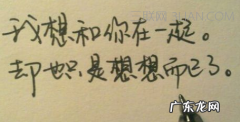 我想和你在一起。
却也只是想想而已了。
广东龙网